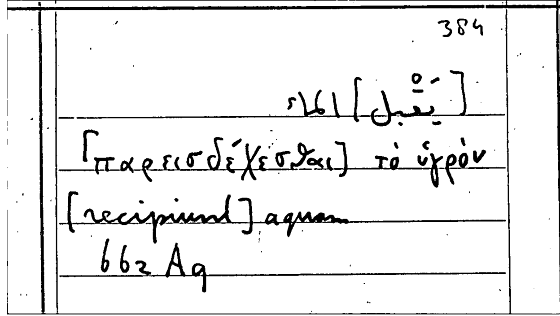 384
[يَقْبل] الماء
[παρεισδέχεσθαι] τὸ ὑγρόν
[recipiunt] aquam
662 Aq